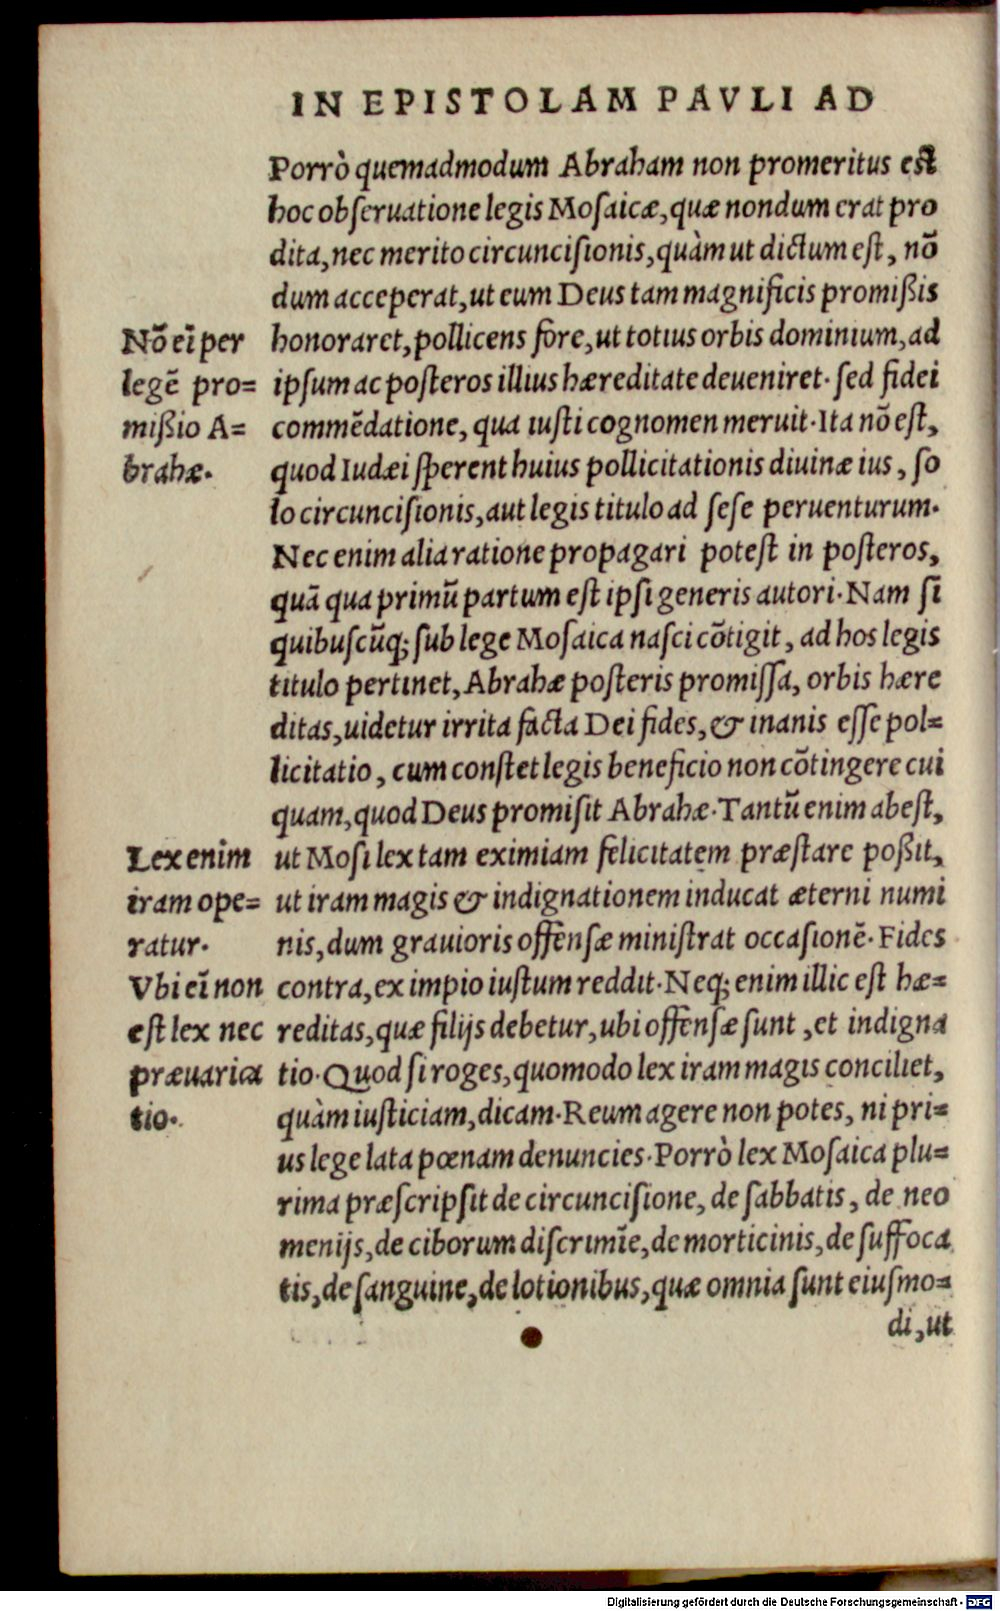 IN EPISTOLAM PAVLI AD
Porrò quemadmodum Abraham non promeritus est
hoc obseruatione legis Mosaicæ, quæ nondum erat pro
dita, nec merito circuncisionis, quàm ut dictum est, nō
dum acceperat, ut eum Deus tam magnificis promißis
honoraret, pollicens fore, ut totius orbis dominium, ad
ipsum ac posteros illius hæreditate deueniret. sed fidei
commēdatione, qua iusti cognomen meruit. Ita nō est,
quod Iudæi sperent huius pollicitationis diuinæ ius, so
lo circuncisionis, aut legis titulo ad sese peruenturum.
Nec enim alia ratione propagari potest in posteros,
quā qua primū partum est ipsi generis autori. Nam si
quibuscūq; sub lege Mosaica nasci cōtigit, ad hos legis
titulo pertinet, Abrahæ posteris promissa, orbis hære
ditas, uidetur irrita facta Dei fides, & inanis esse pol=
licitatio, cum constet legis beneficio non cōtingere cui
quam, quod Deus promisit Abrahæ. Tantū enim abest,
ut Mosi lex tam eximiam felicitatem præstare poßit,
ut iram magis & indignationem inducat æterni numi
nis, dum grauioris offensæ ministrat occasionē. Fides
contra, ex impio iustum reddit. Neq; enim illic est hæ=
reditas, quæ filijs debetur, ubi offensæ sunt, et indigna
tio. Quod si roges, quomodo lex iram magis conciliet,
quàm iusticiam, dicam. Reum agere non potes, ni pri=
us lege lata pœnam denuncies. Porrò lex Mosaica plu=
rima præscripsit de circuncisione, de sabbatis, de neo
menijs, de ciborum discrimīe, de morticinis, de suffoca
tis, de sanguine, de lotionibus, quæ omnia sunt eiusmo=
di, ut
Nō eī per
legē pro=
mißio A=
brahæ.
Lex enim
iram ope=
ratur.
Vbi eī non
est lex nec
præuarica
tio.
Digitalisierung gefördert durch die Deutsche Forschungsgemeinschaft - DFG